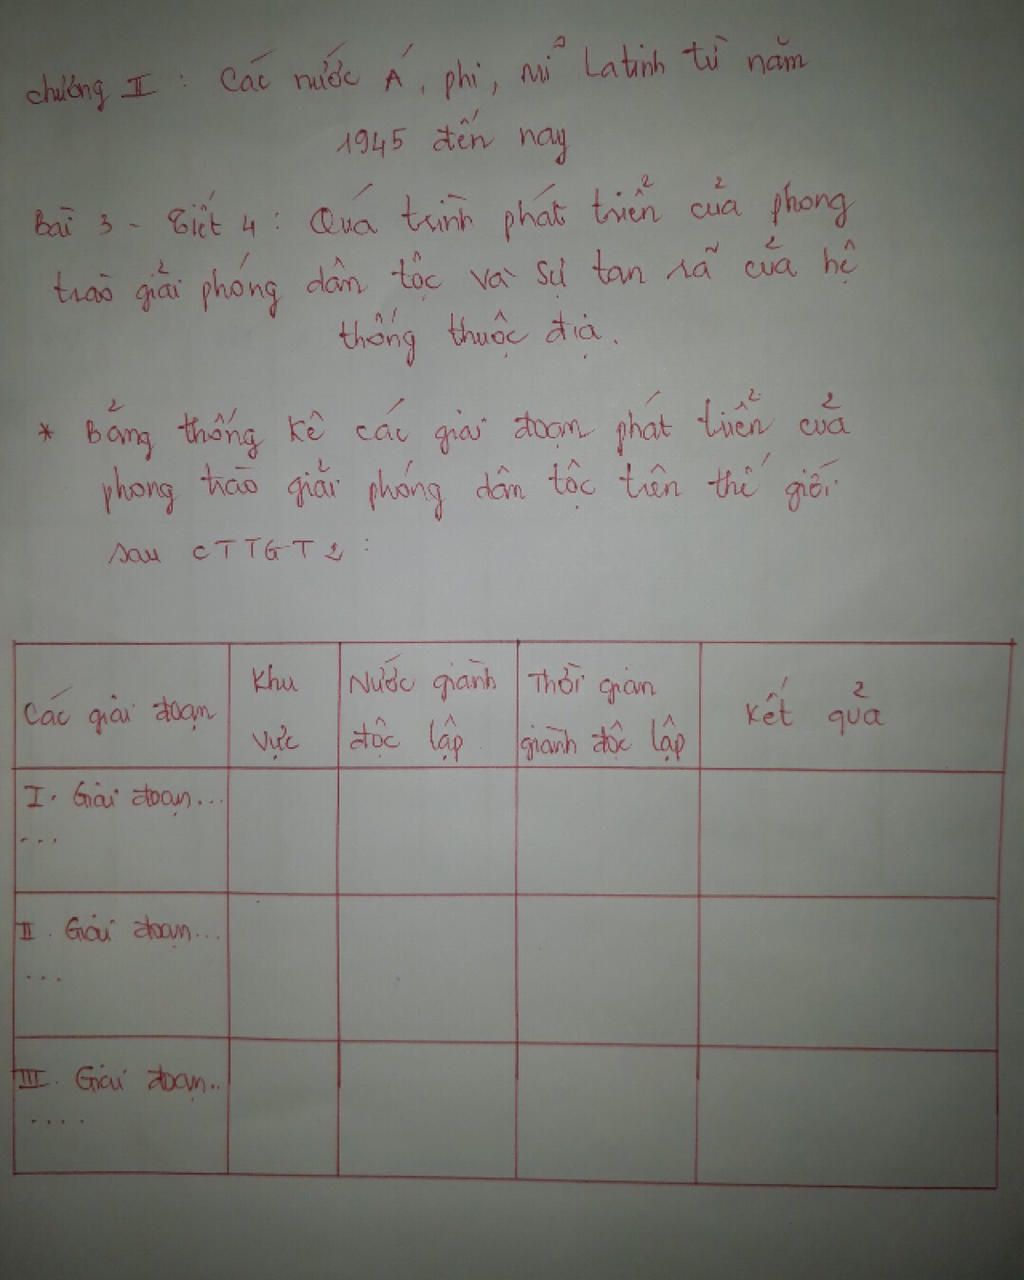 Chương II : Các nước Á, phi, mĩ Latinh từ năm
1945 đến nay
Bài 3 - Tiết 4 : Quá trình phát triển của phong
trào giải phóng dân tộc và sự tan rã của hệ
thống thuộc địa.
* Bảng thống kê các giai đoạn phát triển của
phong trào giải phóng dân tộc trên thế giới
sau CTTGT2 :
Các giai đoạn
Khu
vực
Nước giành
độc lập
Thời gian
giành độc lập
Kết quả
I. Giai đoạn...
...
II. Giai đoạn...
...
III. Giai đoạn..
....